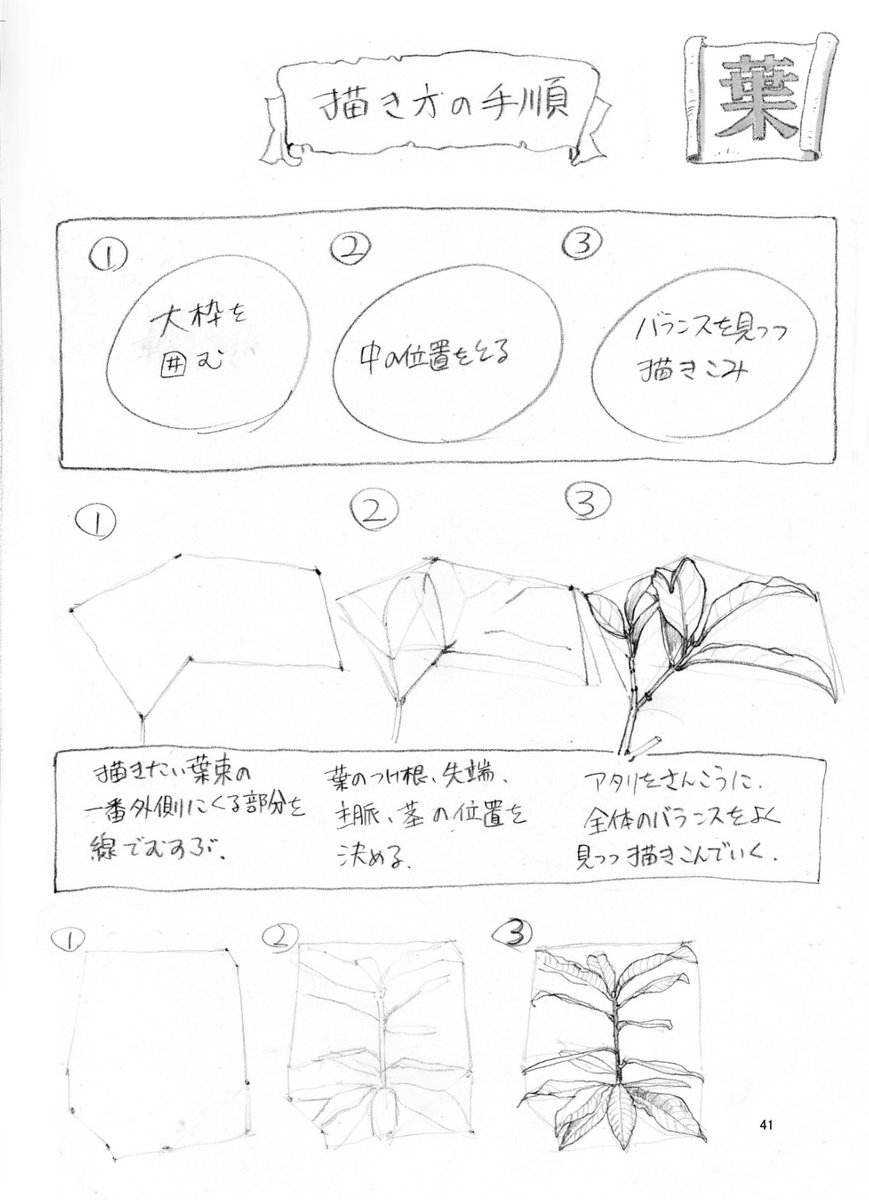 描き方の手順
葉
①
大枠を
囲む
②
中の位置をとる
③
バランスを見つつ
描きこみ
①
②
③
描きたい葉束の
一番外側にくる部分を
線でむすぶ.
葉のつけ根、先端、
主脈、茎の位置を
決める.
アタリをさんこうに.
全体のバランスをよく
見つつ描きこんでいく.
①
②
③
41